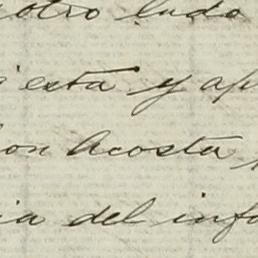 otro lado
esta y ap
on Acosta
ia del info